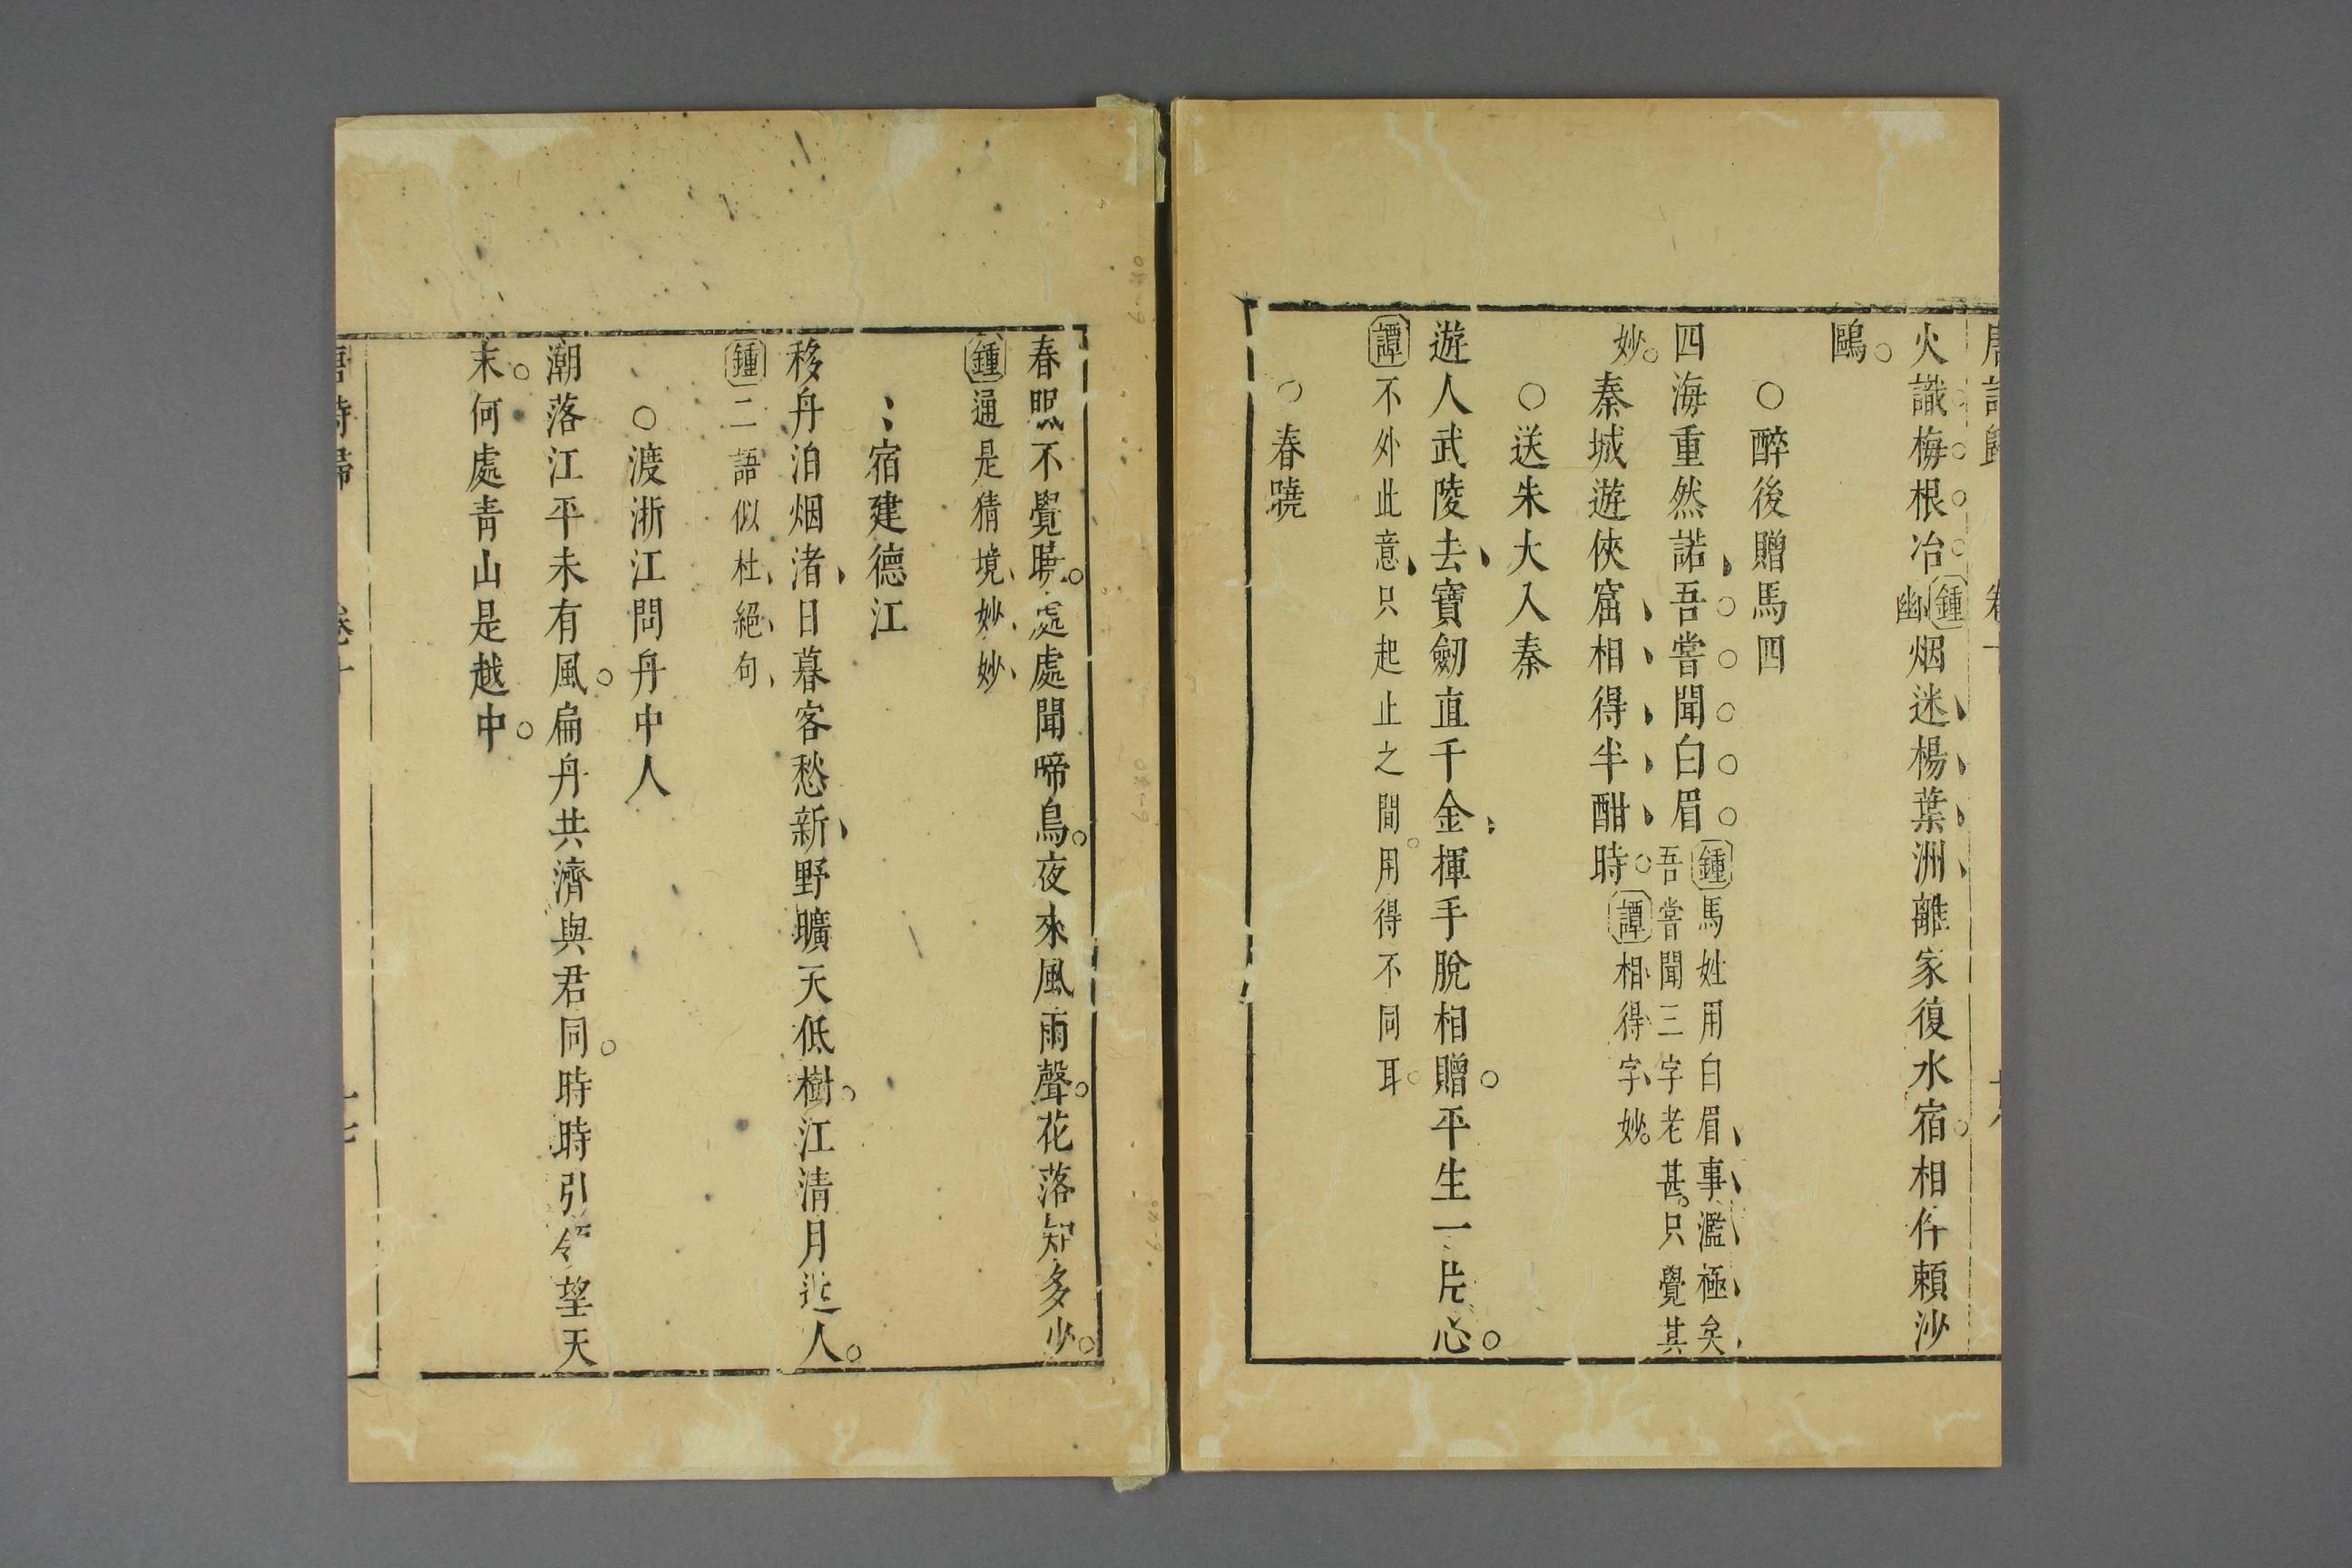 唐詩歸 卷十
火識梅根冶。鍾幽烟迷楊葉洲離家復水宿。相伴賴沙
鷗。
○醉後贈馬四
四海重然諾吾嘗聞白眉鍾馬姓用白眉事濫極矣
吾嘗聞三字老甚。只覺其
妙。秦城遊俠窟相得半酣時。譚相得字妙。
○送朱大入秦
遊人武陵去寶劒直千金揮手脫相贈。平生一片心。
譚不外此意只起止之間。用得不同耳。
○春曉
春眠不覺曉。處處聞啼鳥。夜來風雨聲。花落知多少。
鍾通是猜境妙妙
宿建德江
移舟泊烟渚日暮客愁新野曠天低樹。江清月近人。
鍾二語似杜絕句
○渡浙江問舟中人
潮落江平未有風。扁舟共濟與君同。時時引領望天
末。何處青山是越中。
唐詩歸 卷十 十七